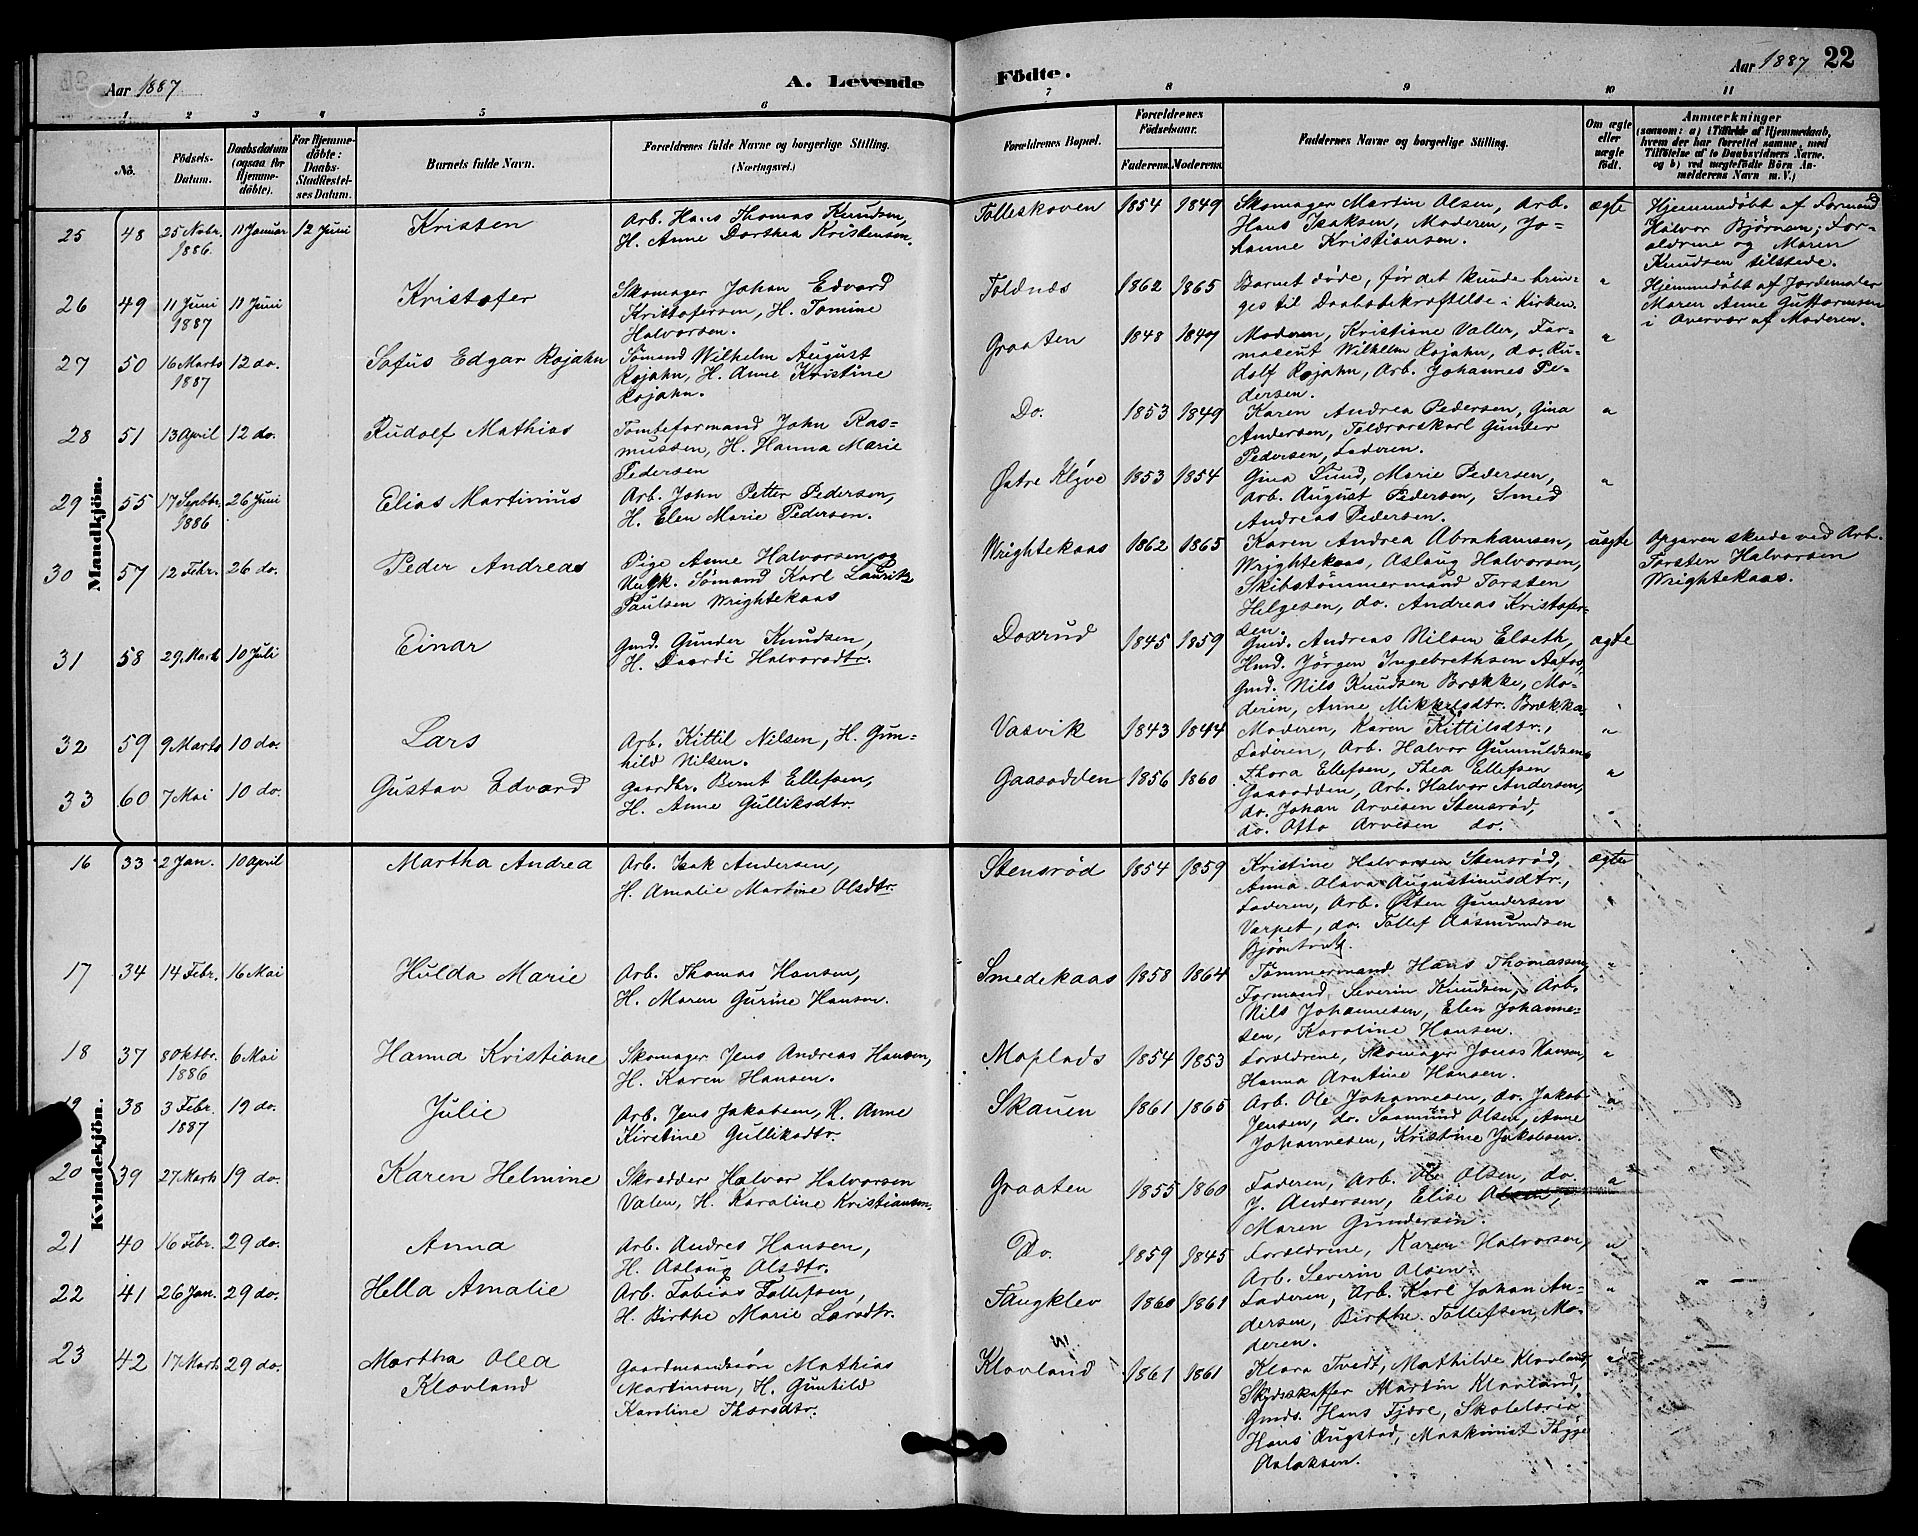 Aar 1887 A. Levende Födte. Aar 1887 22
1 2 3 4 5 6 7 8 9 10 11
No. Födsels-Datum. Daabsdatum (ogsaa for Hjemme-döbte). For Hjemme-döbte: Daabs-Stadfæstel-ses Datum. Barnets fulde Navn. Forældrenes fulde Navne og borgerlige Stilling. (Næringsvei.) Forældrenes Bopæl. Forældrenes Födselsaar. Faderens. Moderens. Faddernes Navne og borgerlige Stilling. Om ægte eller uægte födt. Anmærkninger (saasom: a) i Tilfælde af Hjemmedaab, hvem der har forrettet samme, med Tilföielse af to Daabsvidners Navne, og b) ved uægtefödte Börn An-melderens Navn m. V.)
Mandkjön.
25 48 25 Novbr. 1886. 11 Januar 12 Juni Kristen Arb. Hans Thomas Knudsen, H. Anne Dorthea Kristensen. Tolleskoven 1854 1849 Skomager Martin Olsen, Arb. Hans Isaksen, Moderen, Jo-hanne Kristiansen. ægte Hjemmedøbt af Formand Halvor Bjørnsen; For-ældrene og Maren Knudsen tilstede.
26 49 11 Juni 1887 11 Juni Kristofer Skomager Johan Edvard Kristofersen, H. Tomine Halvorsen. Toldnæs 1862 1865 Barnet døde, før det kunde brin-ges til Daabsbekræftelse i Kirken. " Hjemmedøbt af Jordemoder Maren Anne Guttormsen i Overvær af Moderen.
27 50 16 Marts 1887 12 do. Sofus Edgar Rojahn Sømand Wilhelm August Rojahn, H. Anne Kristine Rojahn. Graaten 1848 1847 Moderen, Kristiane Valler, Far-maceut Wilhelm Rojahn, do. Ru-dolf Rojahn, Arb. Johannes Pe-dersen. "
28 51 13 April 12 do. Rudolf Mathias Tomteformand John Ras-mussen, H. Hanna Marie Pedersen Do. 1853 1849 Karen Andrea Pedersen, Gina Andersen, Toldrorskarl Gunder Pedersen, Faderen. "
29 55 17 Septbr. 1886 26 Juni Elias Martinius Arb. John Petter Pedersen, H. Elen Marie Pedersen. Østre Klyve 1853 1854 Gina Lund, Marie Pedersen, Arb. August Pedersen, Smed Andreas Pedersen. "
30 57 12 Febr. 26 do. Peder Andreas Pige Anne Halvorsen og Ungk. Sømand Karl Lauritz Paulsen Wrightekaas Wrightekaas 1862 1865 Karen Andrea Abrahamsen, Wrightekaas, Aslaug Halvorsen, Skibstømmermand Torsten Helgesen, do. Andreas Kristofer-sen. uægte Opgaven skede ved Arb. Torsten Halvorsen Wrightekaas.
31 58 29 Marts 10 Juli Einar Gmd. Gunder Knudsen, H. Daardi Halvorsdtr. Doxrud 1845 1859 Gmd. Andreas Nilsen Elseth, Hmd. Jörgen Ingebrethsen Aafos, Gmd. Nils Knudsen Brække, Mo-deren, Anne Mikkelsdtr. Brækka. ægte
32 59 9 Marts 10 do. Lars Arb. Kittil Nilsen, H. Gun-hild Nilsen. Vasvik 1843 1844 Moderen, Karen Kittilsdtr., Faderen, Arb. Halvor Gunnuldsen. "
33 60 7 Mai 10 do. Gustav Edvard Gaardbr. Bernt Ellefsen, H. Anne Gulliksdtr. Gaasodden 1856 1860 Thora Ellefsen, Thea Ellefsen Gaasodden, Arb. Halvor Andersen, do. Johan Arvesen Stensrød, do. Otto Arvesen do. "
Kvindekjön.
16 33 2 Jan. 10 April Martha Andrea Arb. Isak Andersen, H. Amalie Martine Olsdtr. Stensrød 1854 1859 Kristine Halvorsen Stensrød, Anna Olava Augustinusdtr., Faderen, Arb. Østen Gundersen Varpet, do. Tollef Aasmundsen ægte
17 34 14 Febr. 16 Mai Hulda Marie Arb. Thomas Hansen, H. Maren Gurine Hansen. Smedekaas 1858 1864 Tømmermand Hans Thomassen, Formand Severin Knudsen, Arb. Nils Johannesen, Elen Johanne-sen, Karoline Hansen. "
18 37 8 Oktbr. 1886 6 Mai Hanna Kristiane Skomager Jens Andreas Hansen, H. Karen Hansen. Moplads 1854 1853 Forældrene, Skomager Jonas Hansen, Hanna Arntine Hansen. "
19 38 3 Febr. 1887 19 do. Julie Arb. Jens Jakobsen, H. Anne Kirstine Gulliksdtr. Skauen 1861 1865 Arb. Ole Johannesen, do. Jakob Jensen, do. Saamund Olsen, Anne Johannesen, Kristine Jakobsen. "
20 39 27 Marts 19 do. Karen Helmine Skrædder Halvor Halvorsen Valen, H. Karoline Kristiansen. Graaten 1855 1860 Faderen, Arb. Ole Olsen, do. J. Andersen, Elise Maren Gundersen. "
21 40 16 Febr. 29 do. Anna Arb. Andres Hansen, H. Aslaug Olsdtr. Do. 1859 1845 Forældrene, Karen Halvorsen, Arb. Severin Olsen. "
22 41 26 Jan. 29 do. Hella Amalie Arb. Tobias Tollefsen, H. Birthe Marie Larsdtr. Tangklev 1860 1861 Faderen, Arb. Karl Johan An-dersen, Birthe Tollefsen, Mo-deren. "
23 42 17 Marts 29 do. Martha Olea Klovland Gaardmandssön Mathias Martinsen, H. Gunhild Karoline Thorsdtr. Klovland 1861 1861 Klara Tvedt, Mathilde Klovland, Skydsskaffer Martin Klovland, Gmds. Hans Fjære, Skolelærer Hans Rugstad, Maskinist Thygge Aslaksen. "